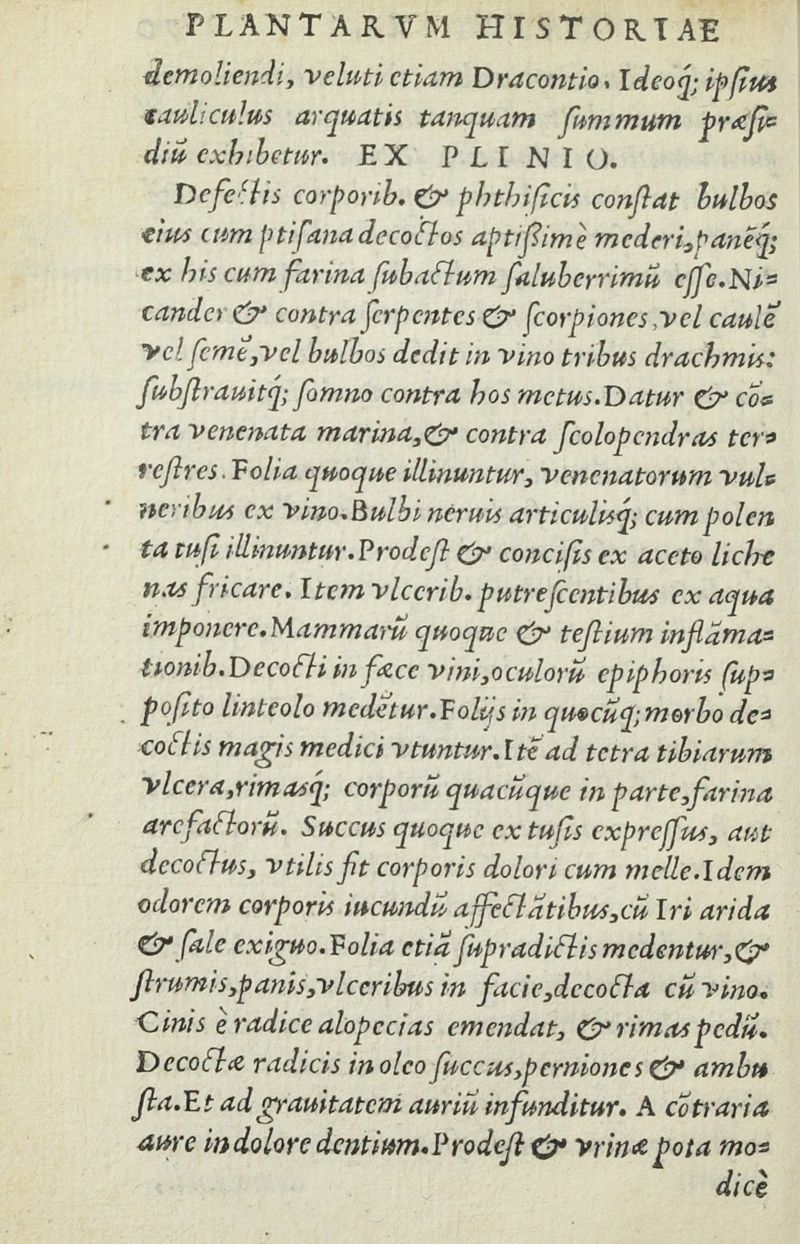 PLANTARVM HISTORIAE
demoliendi, veluti etiam Dracontio. Ideoq́; ipſius
cauliculus arquatis tanquam ſummum præſi-
diũ exhibetur. EX PLINIO.
Defectis corporib. & phthiſicis conſtat bulbos
eius cum ptiſana decoctos aptißimè mederi, panẽq́;
ex his cum farina ſubactum ſaluberrimũ eſſe. Ni-
cander & contra ſerpentes & ſcorpiones, vel caulẽ
vel ſemẽ, vel bulbos dedit in vino tribus drachmis:
ſubſtrauitq́; ſomno contra hos metus. Datur & cõ-
tra venenata marina, & contra ſcolopendras ter-
reſtres. Folia quoque illinuntur, venenatorum vul-
neribus ex vino. Bulbi neruis articulisq́; cum polen
ta tuſi illinuntur. Prodeſt & conciſis ex aceto liche
nas fricare. Item vlcerib. putreſcentibus ex aqua
imponere. Mammarũ quoque & teſtium inflãma-
tionib. Decocti in fæce vini, oculorũ epiphoris ſup-
poſito linteolo medẽtur. Folijs in quocũq; morbo de-
coctis magis medici vtuntur. Itẽ ad tetra tibiarum
vlcera, rimasq́; corporũ quacũque in parte, farina
arefactorũ. Succus quoque ex tuſis expreſſus, aut
decoctus, vtilis fit corporis dolori cum melle. Idem
odorem corporis iucundũ affectãtibus, cũ Iri arida
& ſale exiguo. Folia etiã ſupradictis medentur, &
ſtrumis, panis, vlceribus in facie, decocta cũ vino.
Cinis è radice alopecias emendat, & rimas pedũ.
Decoctæ radicis in oleo ſuccus, perniones & ambu
ſta. Et ad grauitatem auriũ infunditur. A cõtraria
aure in dolore dentium. Prodeſt & vrinæ pota mo-
dicè